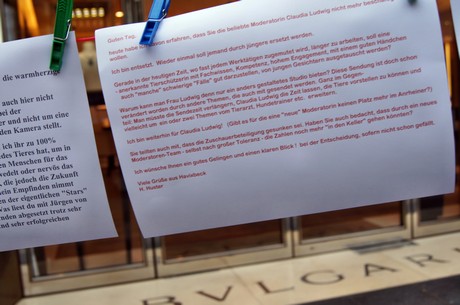 die warmherzig
auch hier nicht
bei der
r und nicht nur
den Kamera stellt.
ich ihr zu 100%
des Tieres hat, um in
en Menschen für das
wedelt oder nervös das
, die jedoch die Zukunft
sein Empfinden nimmt
der eigentlichen "Stars"
Was liest du mit Jürgen von
nden abgesetzt trotz sehr
und sehr erfolgreichen
Guten Tag,
heute habe erfahren, dass Sie die beliebte Moderatorin Claudia Ludwig nicht mehr
wollen.
Ich bin entsetzt. Wieder einmal soll jemand durch jüngere ersetzt werden.
Gerade in der heutigen Zeit, wo fast jedem Werktätigen zugemutet wird, länger zu arbeiten, soll eine
anerkannte Tierschützerin mit Fachwissen, Kompetenz, hohem Engagement, mit einem guten Händchen
auch schwierige "Fälle" gut darzustellen, von jungen Gesichtern ausgetauscht werden?
Warum kann man Frau Ludwig denn nur ein anders gestaltetes Studio bieten? Diese Sendung ist doch schon
verändert worden durch andere Themen, die auch mit gesendet werden. Ganz im Gegen-
teil! Man müsste die Sendezeit verlängern, Claudia Ludwig die Zeit lassen, die Tiere vorstellen zu können und
vielleicht um ein oder zwei Themen vom Tierarzt, Hundetrainer etc. erweitern.
Ich bin weiterhin für Claudia Ludwig! (Gibt es für die eine "neue" Moderatorin keinen Platz mehr im Arxheimer?)
Sie sollten auch mit, dass die Zuschauerbeteiligung gesunken sei. Haben Sie auch bedacht, dass durch ein neues
Moderatoren-Team - selbst nach großer Toleranz - die Zahlen noch mehr "in den Keller" gehen könnten?
Ich wünsche Ihnen ein gutes Gelingen und einen klaren Blick! bei der Entscheidung, sofern nicht schon gefallen.
Viele Grüße aus Havixbeck
H. Huster
BVLGARI